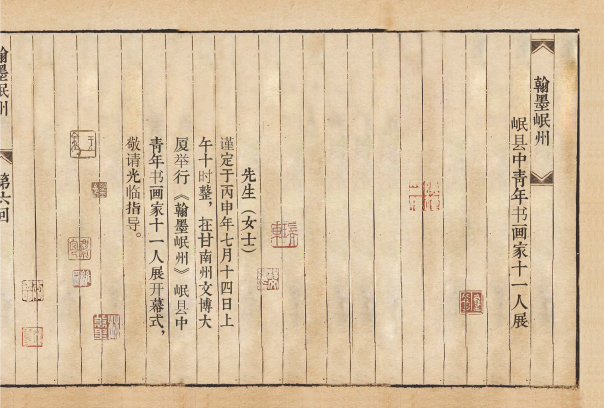 翰墨岷州
岷县中青年书画家十一人展
先生（女士）
谨定于丙申年七月十四日上
午十时整，在甘南州文博大
厦举行《翰墨岷州》岷县中
青年书画家十一人展开幕式，
敬请光临指导。
翰墨岷州
第六回